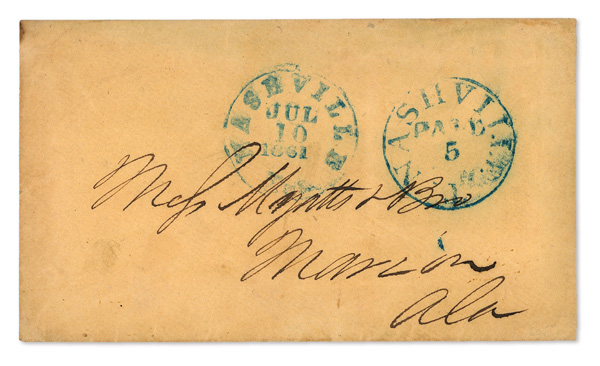 NASHVILLE
JUL
10
1861
NASHVILLE, T.
PAID
5
Mess Myatts & Bro
Marion
Ala